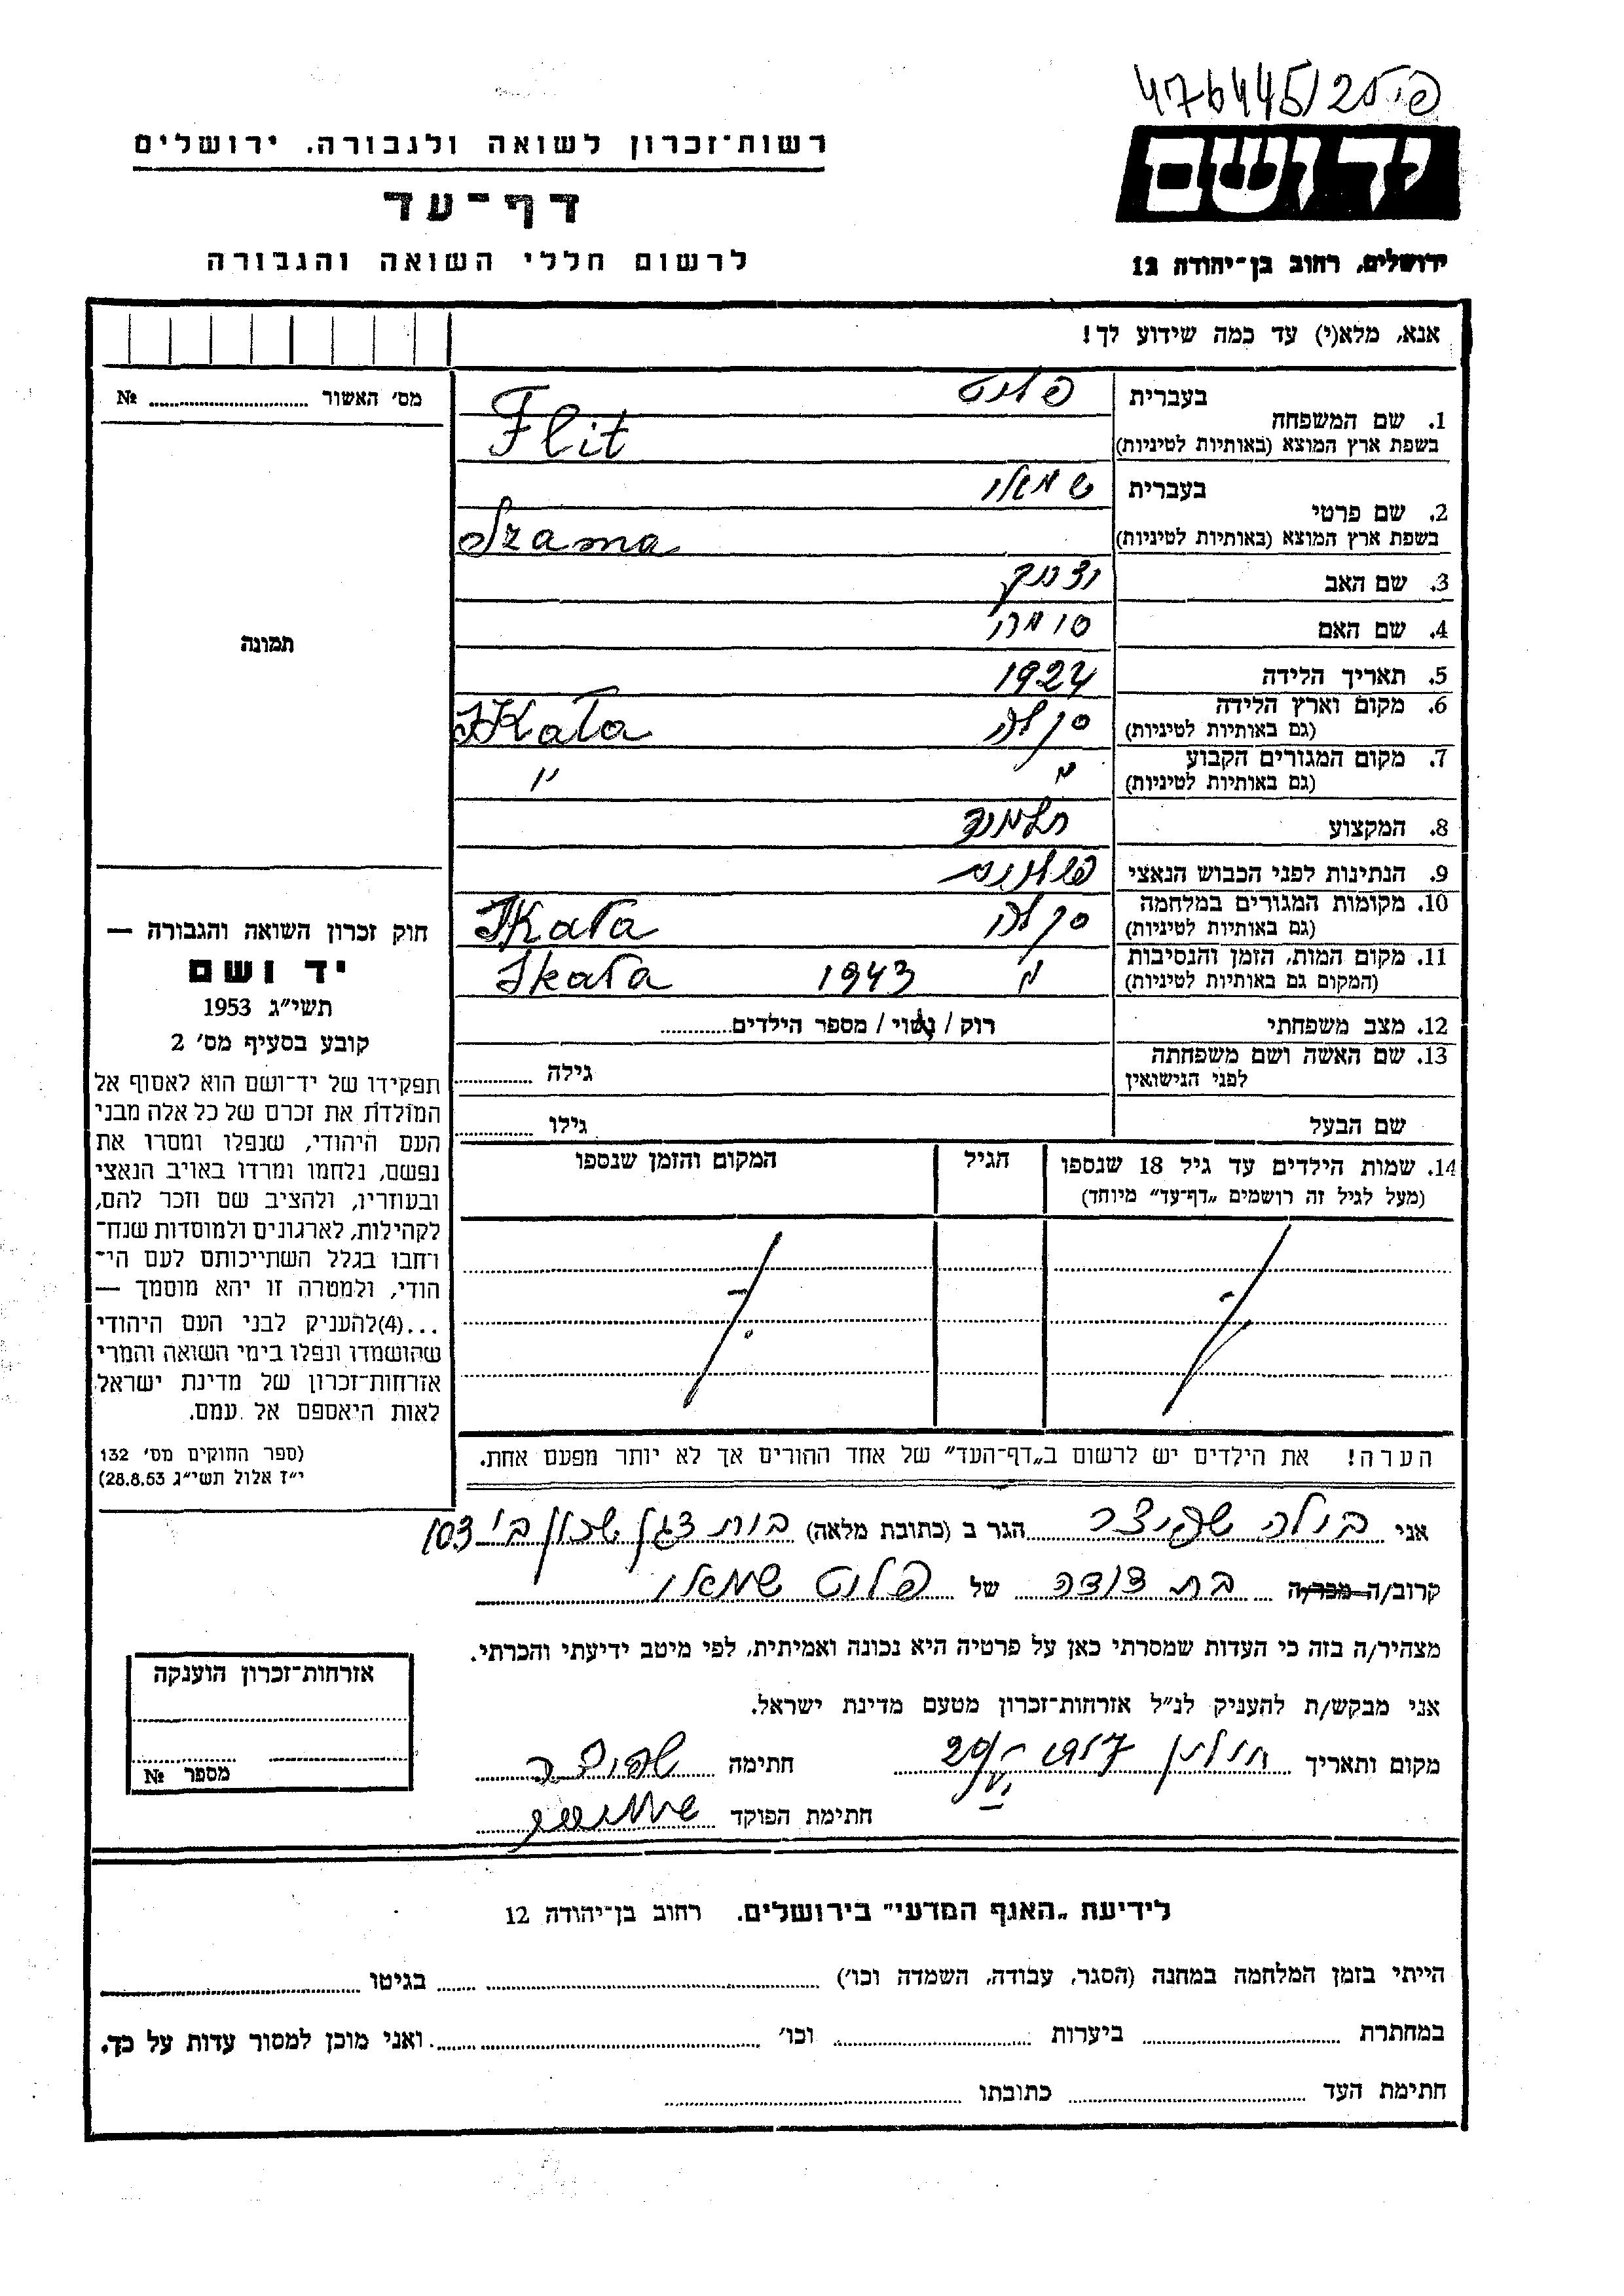 476445/25 פ.ל.
רשות־זכרון לשואה ולגבורה. ירושלים
יד ושם
דף־עד
לרשום חללי השואה והגבורה
ירושלים, רחוב בן־יהודה 12
אנא, מלא(י) עד כמה שידוע לך!
מס׳ האשור № 
תמונה
1. שם המשפחה
בעברית פליט
בשפת ארץ המוצא (באותיות לטיניות) Flit
2. שם פרטי
בעברית
בשפת ארץ המוצא (באותיות לטיניות) Szama
3. שם האב
4. שם האם
5. תאריך הלידה 1924
6. מקום וארץ הלידה
(גם באותיות לטיניות) סקלה Skala
7. מקום המגורים הקבוע
(גם באותיות לטיניות) " "
8. המקצוע תלמיד
9. הנתינות לפני הכבוש הנאצי
10. מקומות המגורים במלחמה
(גם באותיות לטיניות) סקלה Skala
11. מקום המות, הזמן והנסיבות
(המקום גם באותיות לטיניות) " 1943 Skala
12. מצב משפחתי רוק / נשוי / מספר הילדים
13. שם האשה ושם משפחתה
לפני הנישואין גילה
שם הבעל גילו
14. שמות הילדים עד גיל 18 שנספו הגיל המקום והזמן שנספו
(מעל לגיל זה רושמים „דף־עד״ מיוחד)
הערה! את הילדים יש לרשום ב„דף־העד״ של אחד ההורים אך לא יותר מפעם אחת.
חוק זכרון השואה והגבורה —
יד ושם
תשי״ג 1953
קובע בסעיף מס׳ 2
תפקידו של יד־ושם הוא לאסוף אל
המולדת את זכרם של כל אלה מבני
העם היהודי, שנפלו ומסרו את
נפשם, נלחמו ומרדו באויב הנאצי
ובעוזריו, ולהציב שם וזכר להם,
לקהילות, לארגונים ולמוסדות שנח־
רחבו בגלל השתייכותם לעם הי־
הודי, ולמטרה זו יהא מוסמך —
...(4)להעניק לבני העם היהודי
שהושמדו ונפלו בימי השואה והמרי
אזרחות־זכרון של מדינת ישראל
לאות היאספם אל עמם.
(ספר החוקים מס׳ 132
י״ז אלול תשי״ג 28.8.53)
אני בילה שפיצר הגר ב (כתובת מלאה) בית דגן שכון ב׳ 103
קרוב/ה מכר/ה בת דודה של פליט
מצהיר/ה בזה כי העדות שמסרתי כאן על פרטיה היא נכונה ואמיתית, לפי מיטב ידיעתי והכרתי.
אני מבקש/ת להעניק לנ״ל אזרחות־זכרון מטעם מדינת ישראל.
מקום ותאריך חתימה שפיצר
חתימת הפוקד
אזרחות־זכרון הוענקה
מספר №
לידיעת „האגף המדעי״ בירושלים. רחוב בן־יהודה 12
הייתי בזמן המלחמה במחנה (הסגר, עבודה, השמדה וכו׳) בגיטו
במחתרת ביערות וכו׳ ואני מוכן למסור עדות על כך.
חתימת העד כתובתו